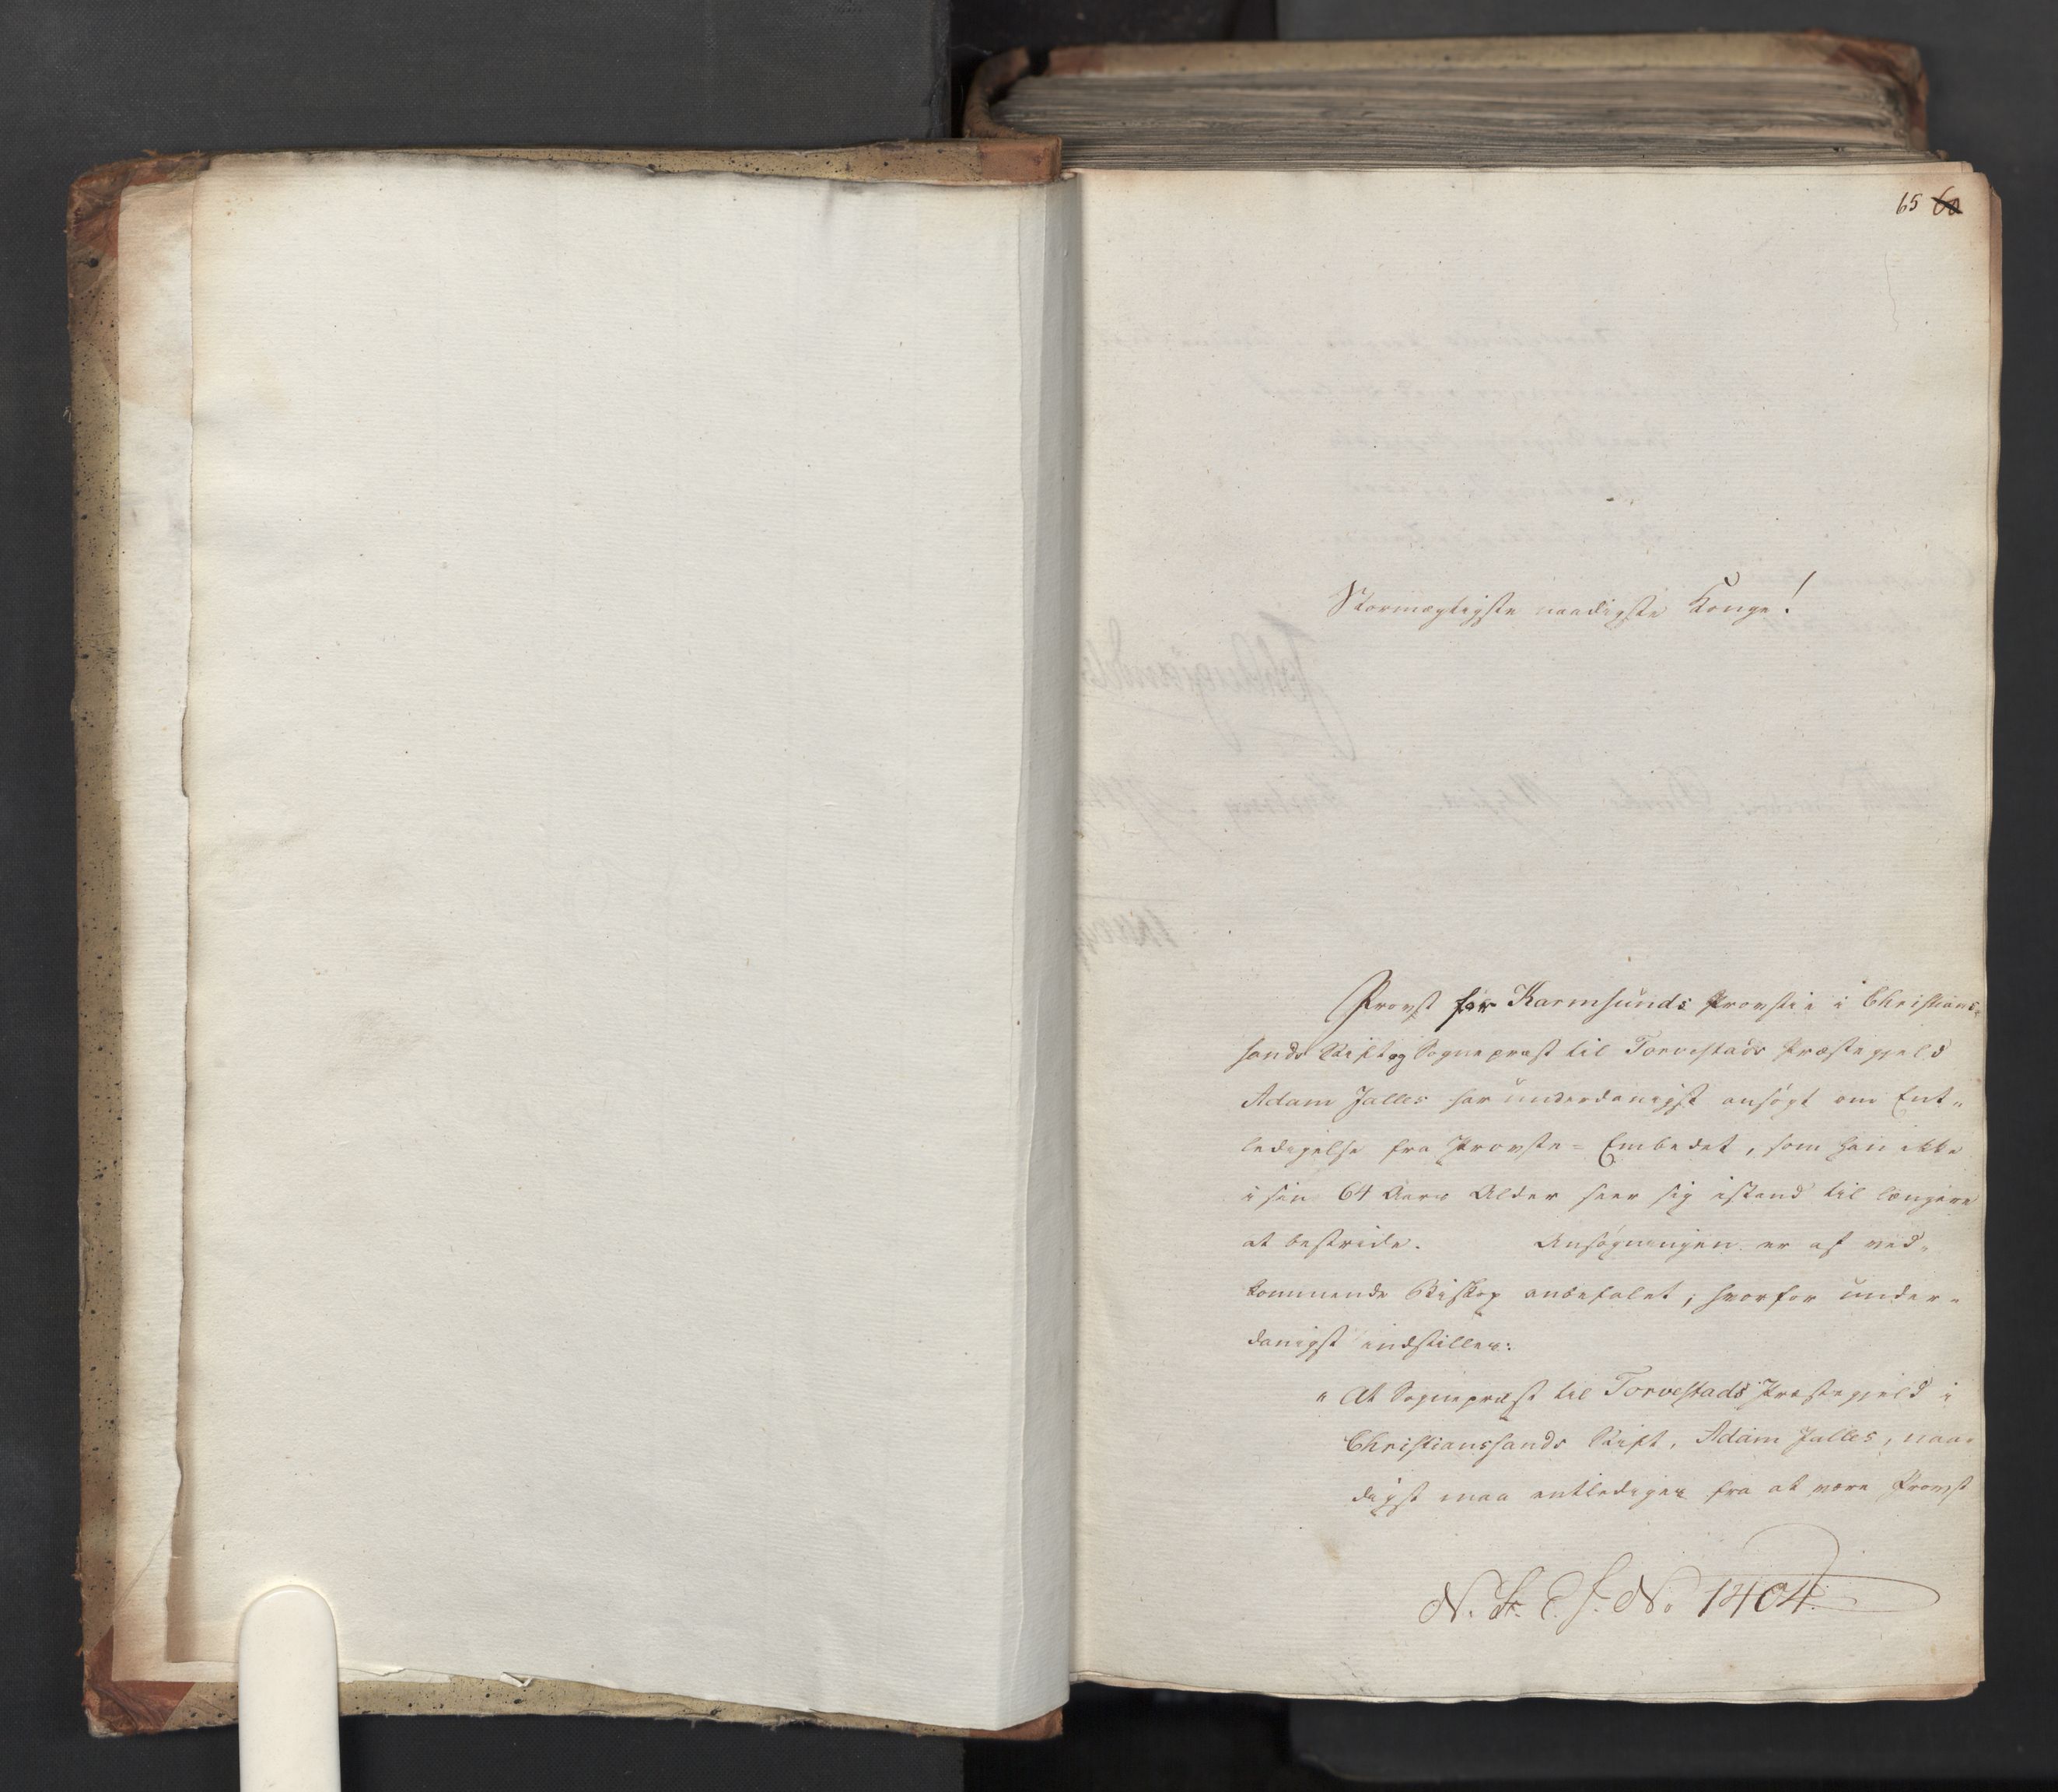 65 60
Stormægtigste naadigste Konge!
Provst for Karmsunds Provstie i Christians-
sands Stift og Sognepræst til Torvestads Præstegjeld
Adam Jalles har underdanigst ansøgt om Ent-
ledigelse fra Provste-Embedet, som han ikke
i sin 64 Aars Alder seer sig istand til længere
at bestride. Ansøgningen er af ved-
kommende Biskop anbefalet; hvorfor under-
danigst indstilles:
" At Sognepræst til Torvestads Præstegjeld i
Christianssands Stift, Adam Jalles, naa-
digst maa entlediges fra at være Provst
N. St. E. J. No 1404.